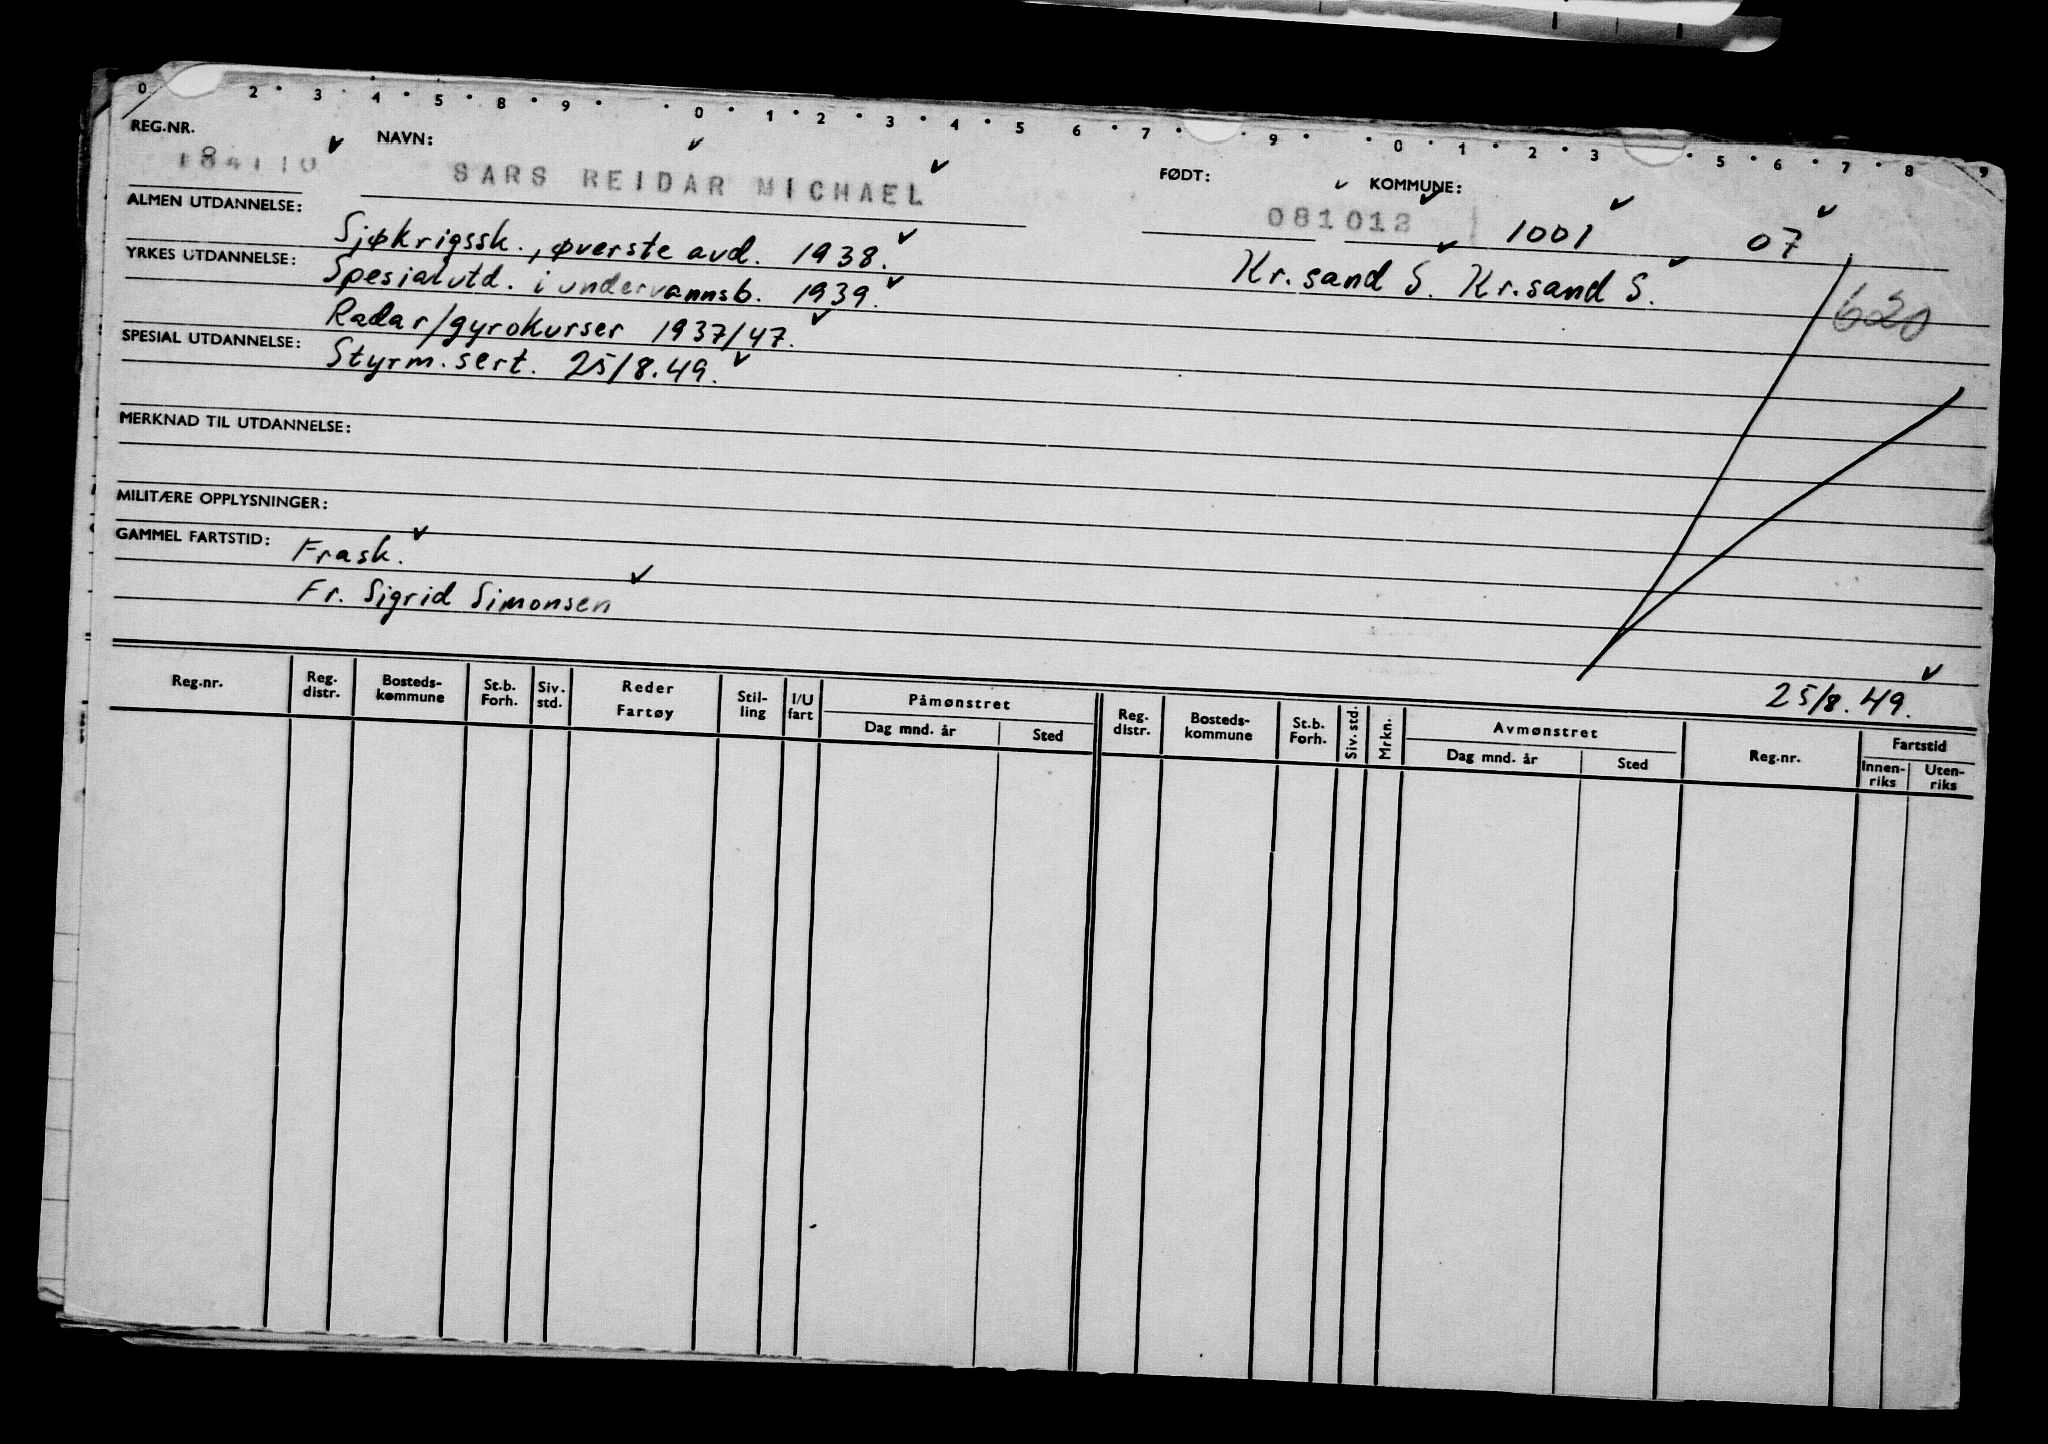 0 2 • 3 • 4 • 5 • 8 • 9 • • 0 • 1 • 2 • 3 • 4 • 5 6 • 7 • • 9 • • 0 • 1 • 2 • 3 • 5 • 6 • 7 • 8 9
REG.NR. NAVN: FØDT: KOMMUNE:
184110 SARS REIDAR MICHAEL 081012 1001 07
ALMEN UTDANNELSE: Sjøkrigssk., øverste avd. 1938. Kr.sand S. Kr.sand S.
YRKES UTDANNELSE: Spesialutd. i undervannsb. 1939. 620
Radar/gyrokurser 1937/47.
SPESIAL UTDANNELSE: Styrm.sert. 25/8.49.
MERKNAD TIL UTDANNELSE:
MILITÆRE OPPLYSNINGER:
GAMMEL FARTSTID: Frask.
Fr. Sigrid Simonsen
25/8.49.
Reg.nr. Reg. distr. Bosteds- kommune St.b. Forh. Siv. std. Reder Fartøy Stil- ling I/U fart Påmønstret Dag mnd. år Sted Reg. distr. Bosteds- kommune St.b. Forh. Siv. std. Mrkn. Avmønstret Dag mnd. år Sted Reg.nr. Fartstid Innen- riks Uten- riks